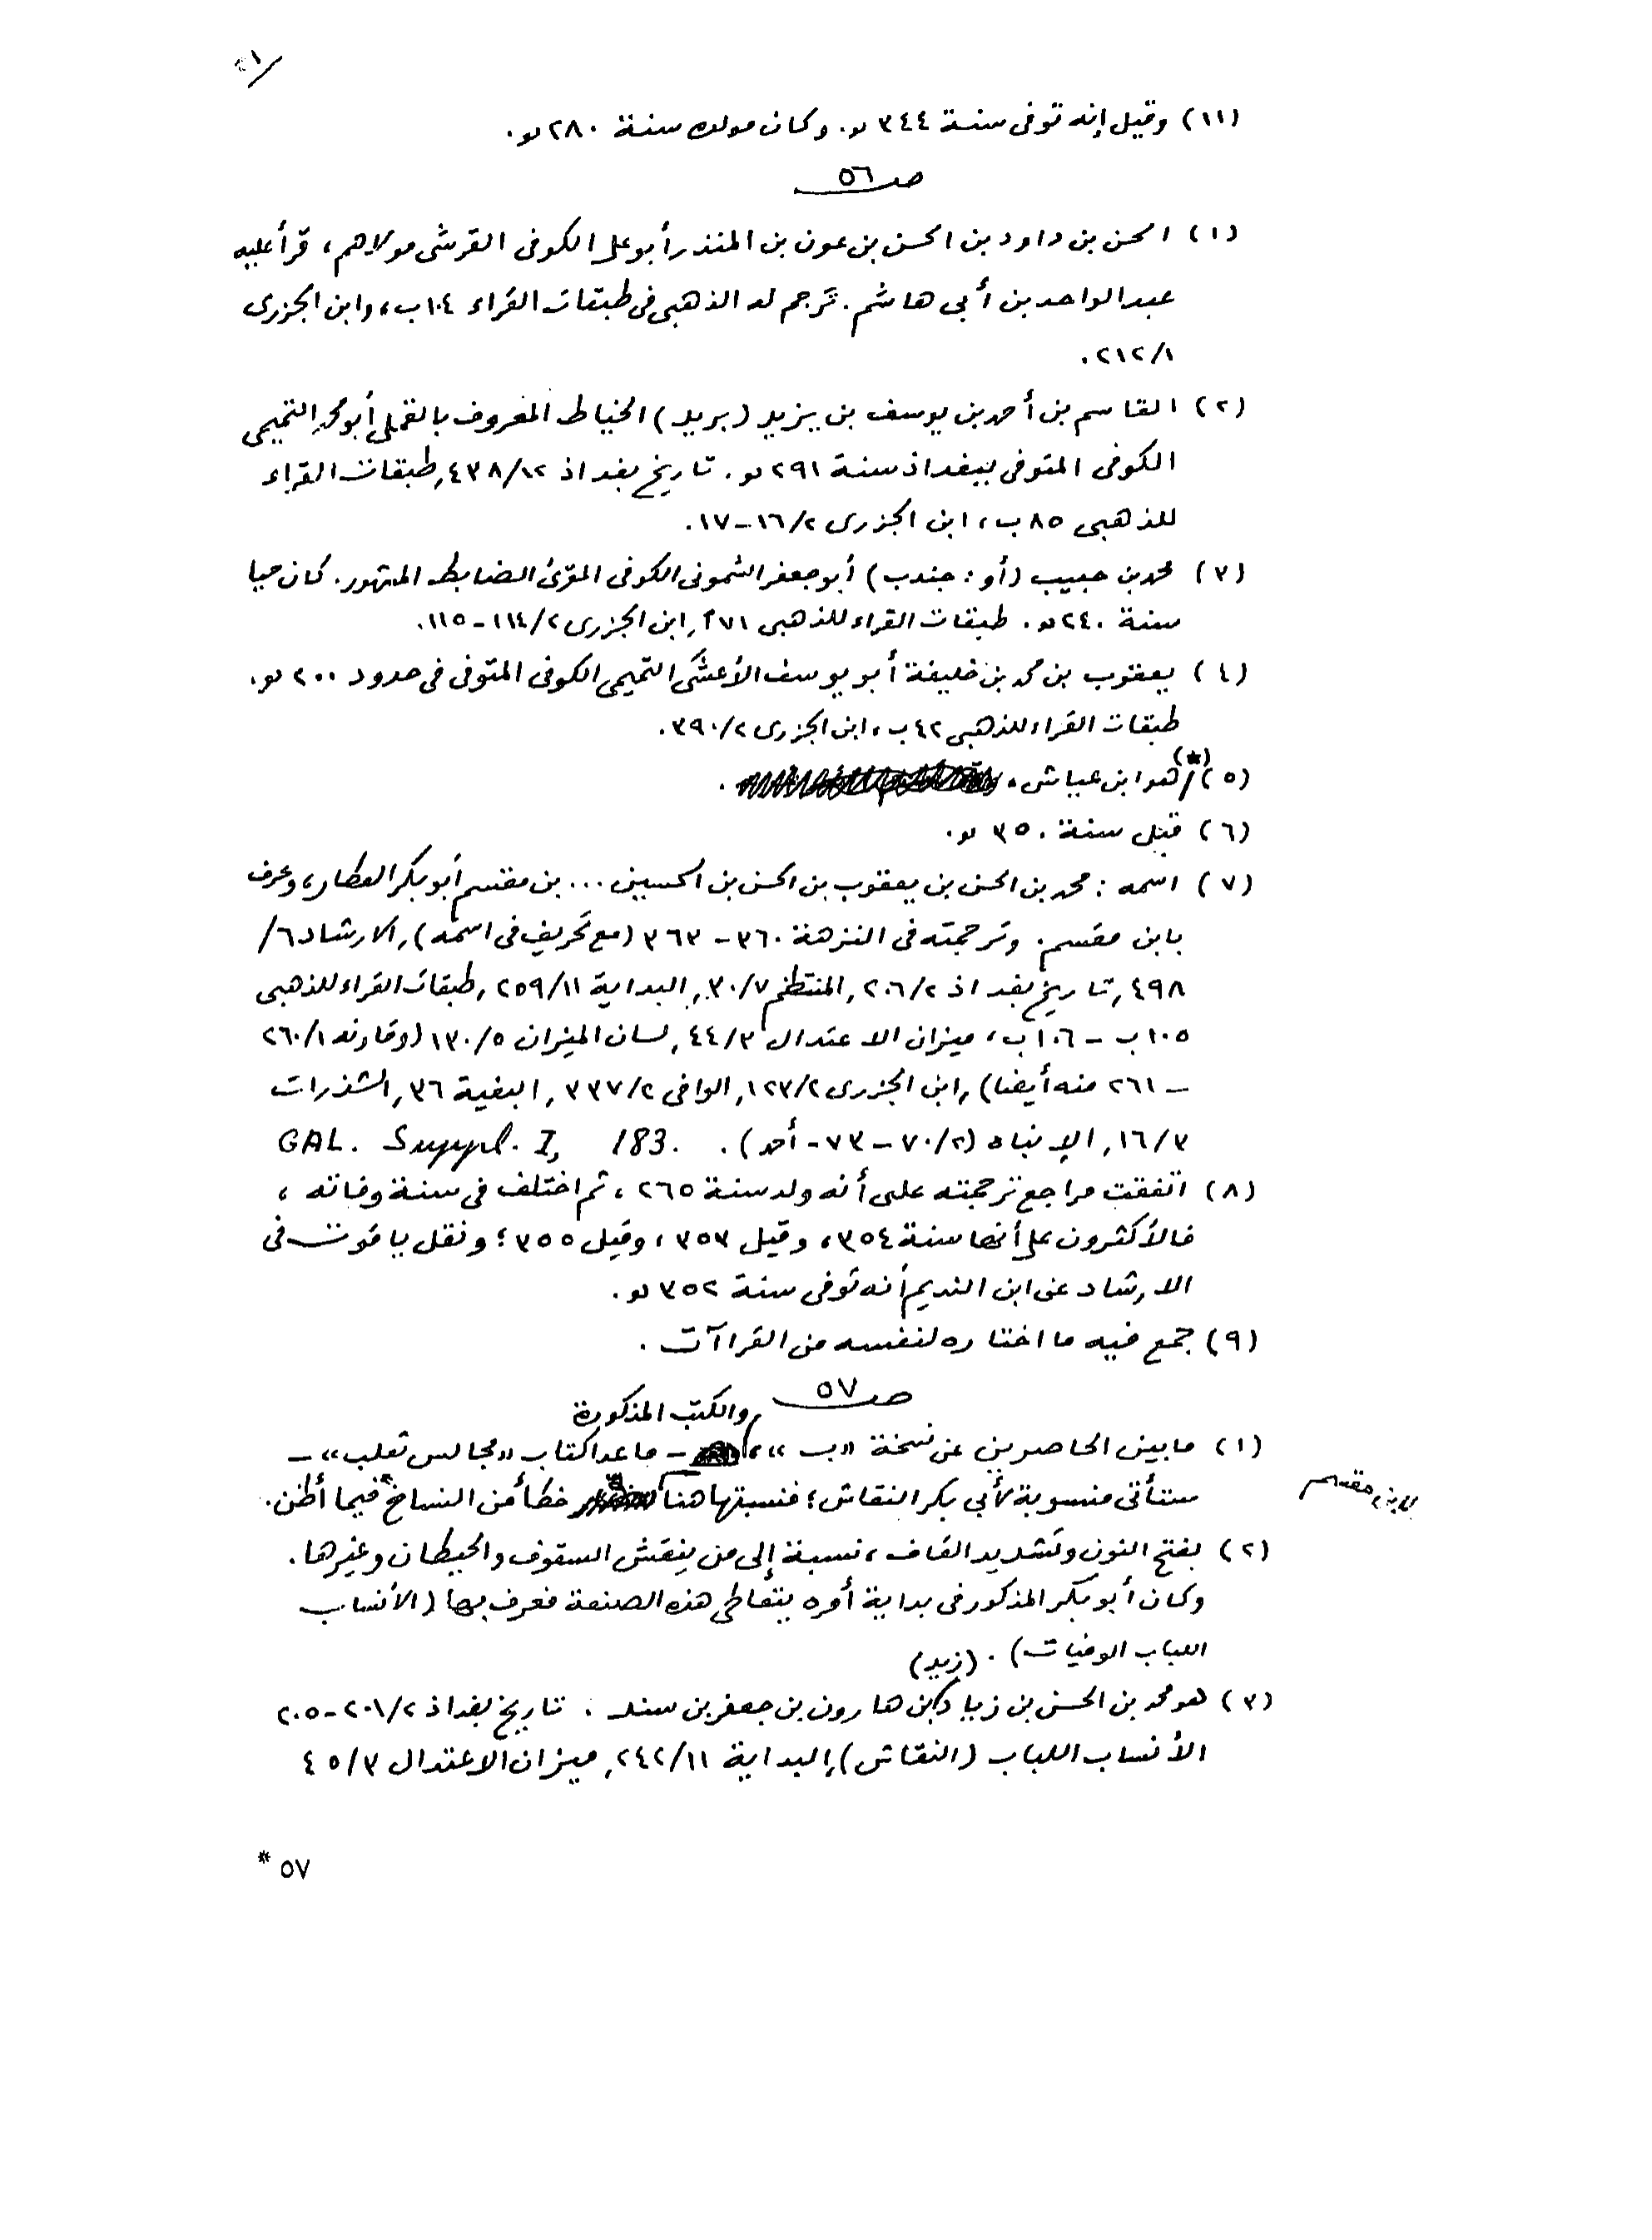 (١١) وقيل إنه توفى سنة ٣٤٤ هـ. وكان مولده سنة ٢٨٠ هـ.
صـ ٥٦
(١) الحسن بن داود بن الحسن بن عون بن المنذر أبو على الكوفى القرشى مولاهم، قرأ عليه
عبد الواحد بن أبى هاشم. ترجم له الذهبى فى طبقات القراء ١٠٤ب، وابن الجزرى
٢١٢/١.
(٢) القاسم بن أحمد بن يوسف بن يزيد (بريد) الخياط المعروف بالقملى أبو محمد التميمى
الكوفى المتوفى ببغداد سنة ٢٩١ هـ. تاريخ بغداد ٤٣٨/١٢, طبقات القراء
للذهبى ٨٥ب، ابن الجزرى ١٦/٢-١٧.
(٣) محمد بن حبيب (أو: جندب) أبو جعفر الشمونى الكوفى المقرئ الضابط المشهور. كان حيا
سنة ٢٤٠ هـ. طبقات القراء للذهبى ٧١أ, ابن الجزرى ١١٤/٢-١١٥.
(٤) يعقوب بن محمد بن خليفة أبو يوسف الأعشى التميمى الكوفى المتوفى فى حدود ٢٠٠ هـ.
طبقات القراء للذهبى ٤٢ب، ابن الجزرى ٣٩٠/٢.
(٥) (*) هو ابن عياش.
(٦) قبل سنة ٣٥٠ هـ.
(٧) اسمه: محمد بن الحسن بن يعقوب بن الحسن بن الحسين ... بن مقسم أبو بكر العطار، وعرف
بابن مقسم. وترجمته فى النزهة ٣٦٠-٣٦٣ (مع تحريف فى اسمه), الارشاد ٦/
٤٩٨, تاريخ بغداد ٢٠٦/٢, المنتظم ٣٠/٧, البداية ٢٥٩/١١, طبقات القراء للذهبى
١٠٥ب - ١٠٦ب، ميزان الاعتدال ٤٤/٣, لسان الميزان ١٣٠/٥ (وقارنه ٢٦٠/١
- ٢٦١ منه أيضا), ابن الجزرى ١٢٣/٢, الوافى ٣٣٧/٢, البغية ٣٦, الشذرات
١٦/٣, الإنباه (٧٠/٢-٧٣-أحمد). GAL. Suppl. I, 183.
(٨) اتفقت مراجع ترجمته على أنه ولد سنة ٢٦٥، ثم اختلف فى سنة وفاته،
فالأكثرون على أنها سنة ٣٥٤، وقيل ٣٥٣، وقيل ٣٥٥؛ ونقل ياقوت فى
الارشاد عن ابن النديم أنه توفى سنة ٣٥٢ هـ.
(٩) جمع فيه ما اختاره لنفسه من القراآت.
صـ ٥٧
والكتب المذكورة
(١) ما بين الحاصرين عن نسخة «ب»، - ما عدا كتاب «مجالس ثعلب» -
ستأتى منسوبة لأبى بكر النقاش؛ فنسبتها هنا خطأ من النساخ فيما أظن.
لابن مقسم
(٢) بفتح النون وتشديد القاف، نسبة إلى من ينقش السقوف والحيطان وغيرها.
وكان أبو بكر المذكور فى بداية أمره يتعاطى هذه الصنعة فعرف بها (الأنساب
اللباب الوفيات).
(زيد)
(٣) هو محمد بن الحسن بن زياد بن هارون بن جعفر بن سند. تاريخ بغداد ٢٠١/٢-٢٠٥
الأنساب اللباب (النقاش), البداية ٢٤٢/١١, ميزان الاعتدال ٤٥/٣
٥٧ *